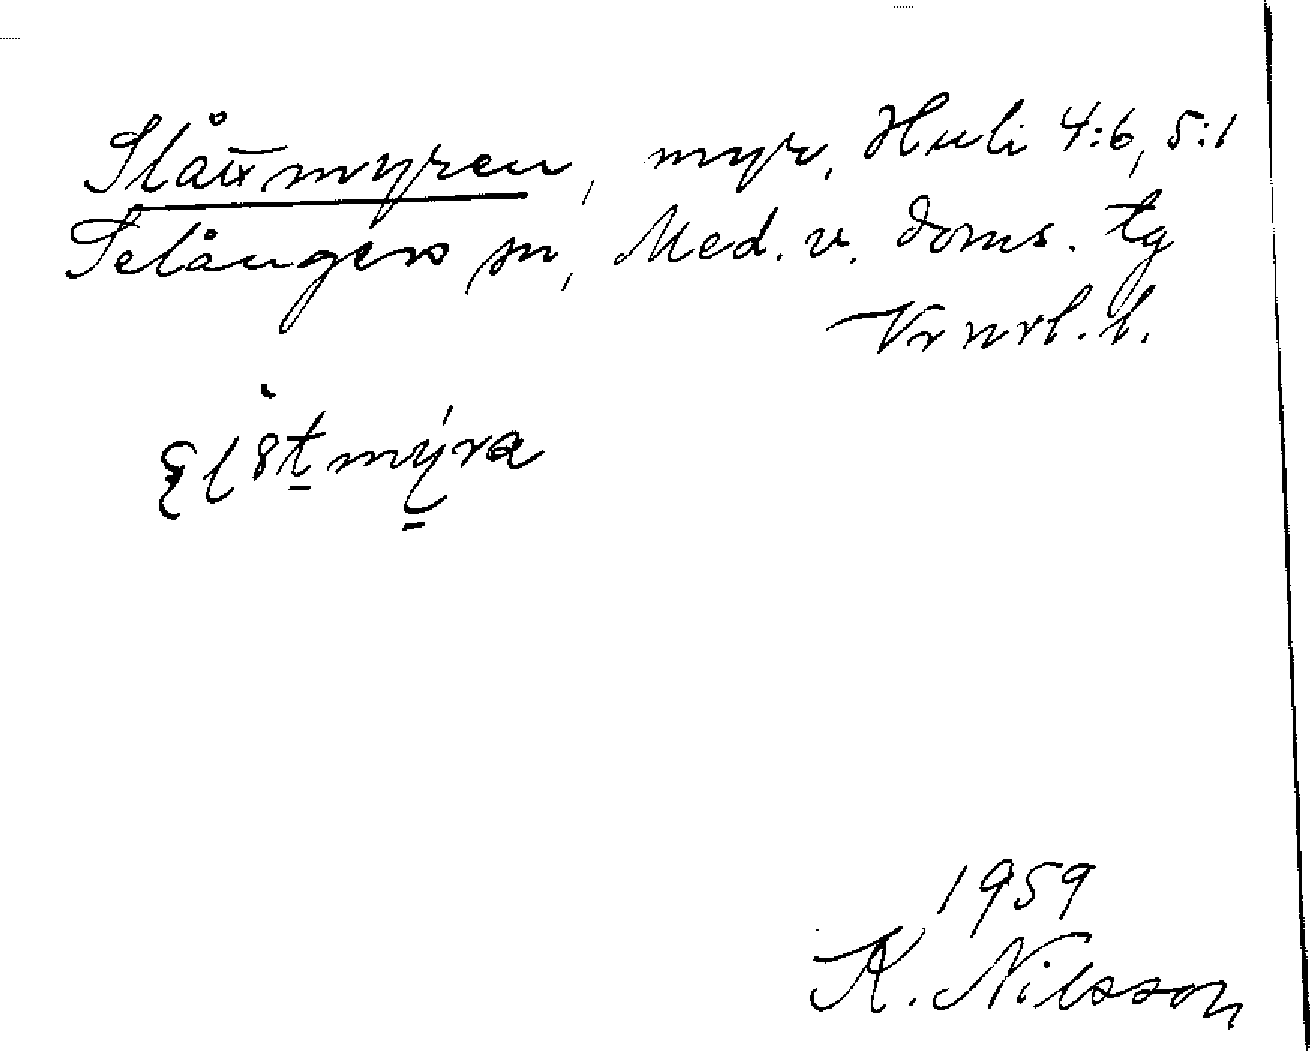 Slåttmyren, myr, Huli 4:6, 5:1
Selångers sn, Med. v. doms. tg
Vrnrl. l.
1959
K. Nilsson